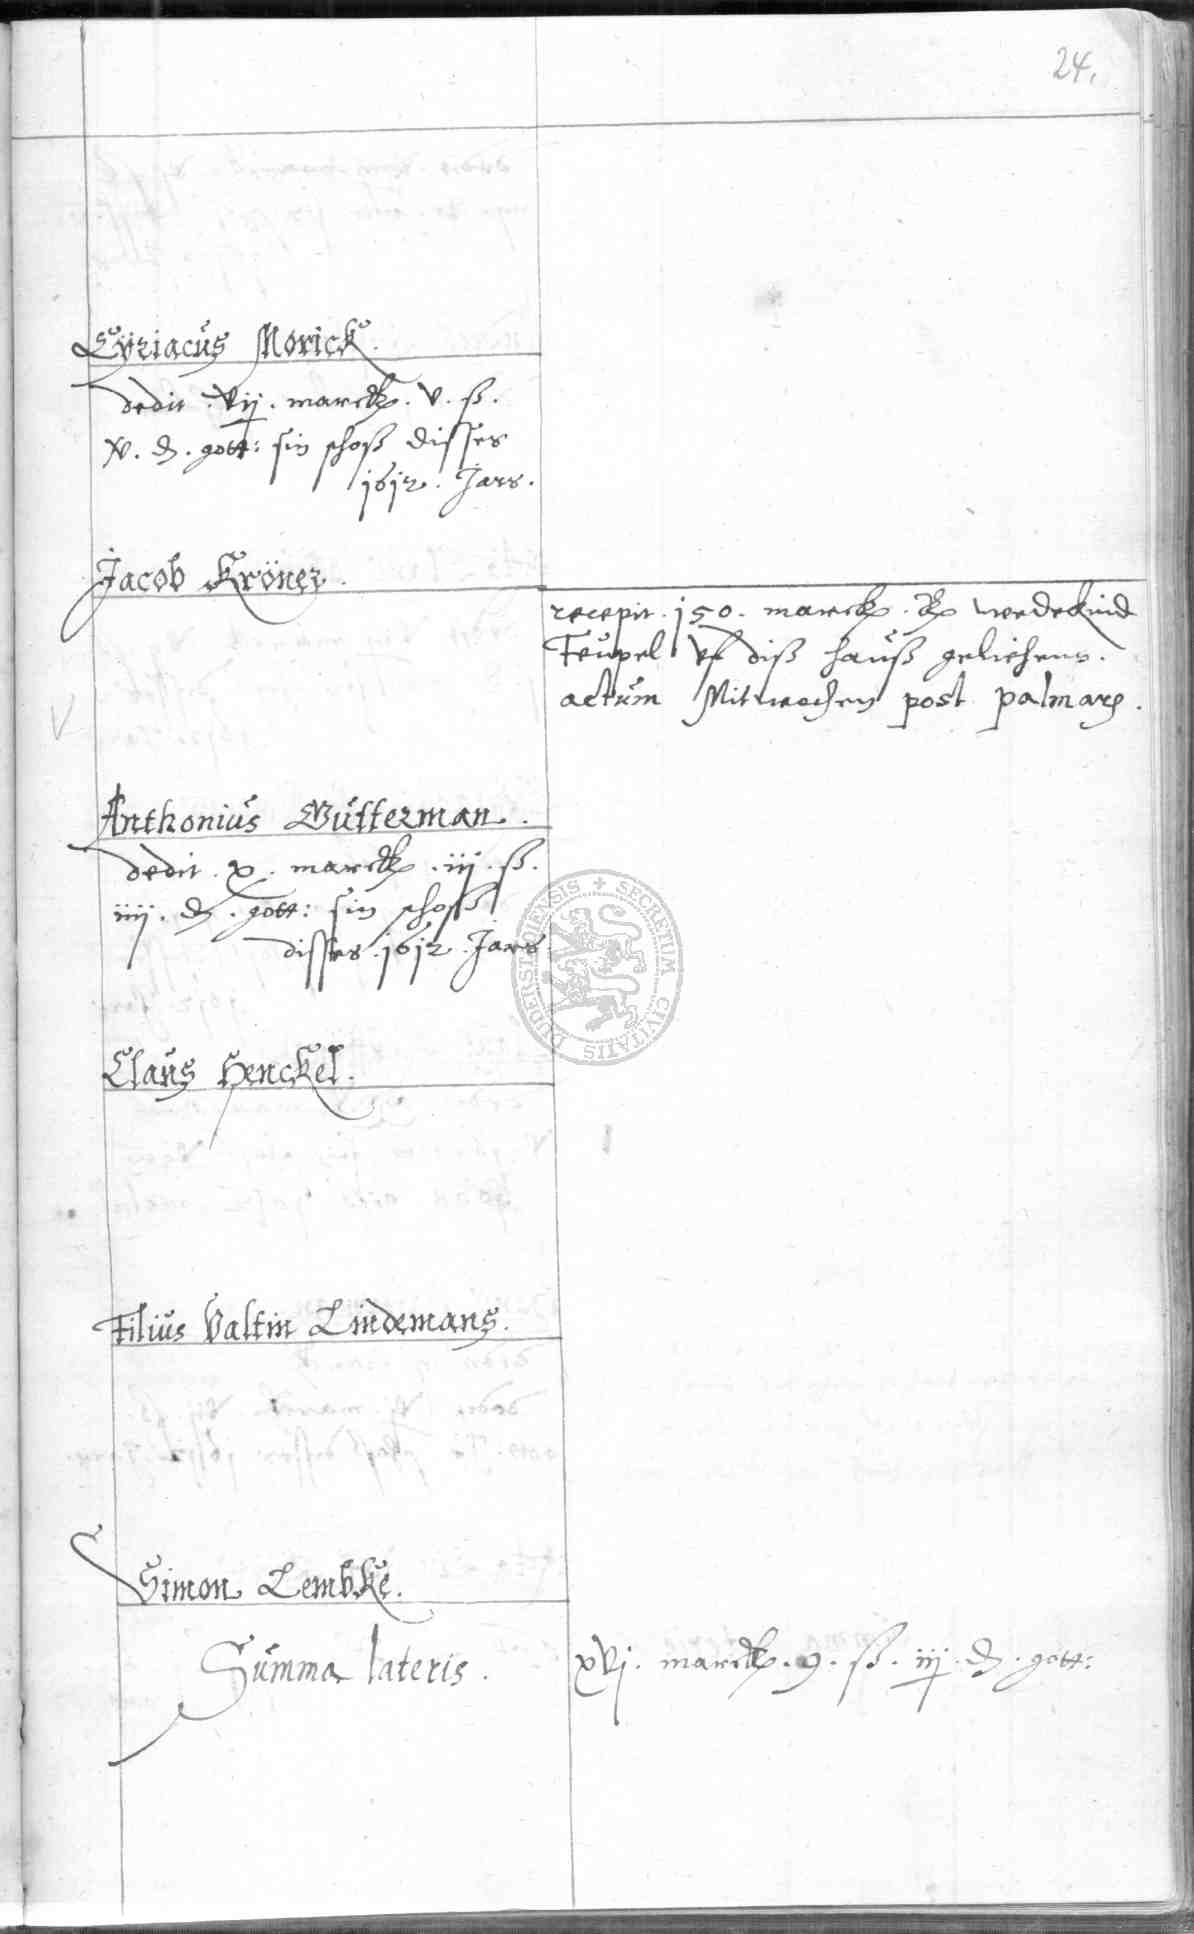 24.
Cyriacus Morick.
dedit . vij . marck . v . ß .
x . ₰ . gott: sin schoß disses
1612 . Jars .
Jacob Kröner .
recepit . 150 . marck . Wedekind
Teupel uf diß hauß geliehens .
actum Mitwochen post palmarum .
Anthonius Gutterman .
dedit . x . marck . iij . ß .
iiij . ₰ . gott: sin schoß
disses . 1612 . Jars .
Claus Henckel .
Filius Valtin Lindemans .
Simon Lembke .
Summa lateris .
xvj . marck . 9 . ß . iij . ₰ . gott:
SECRETUM CIVITATIS DUDERSTADIENSIS